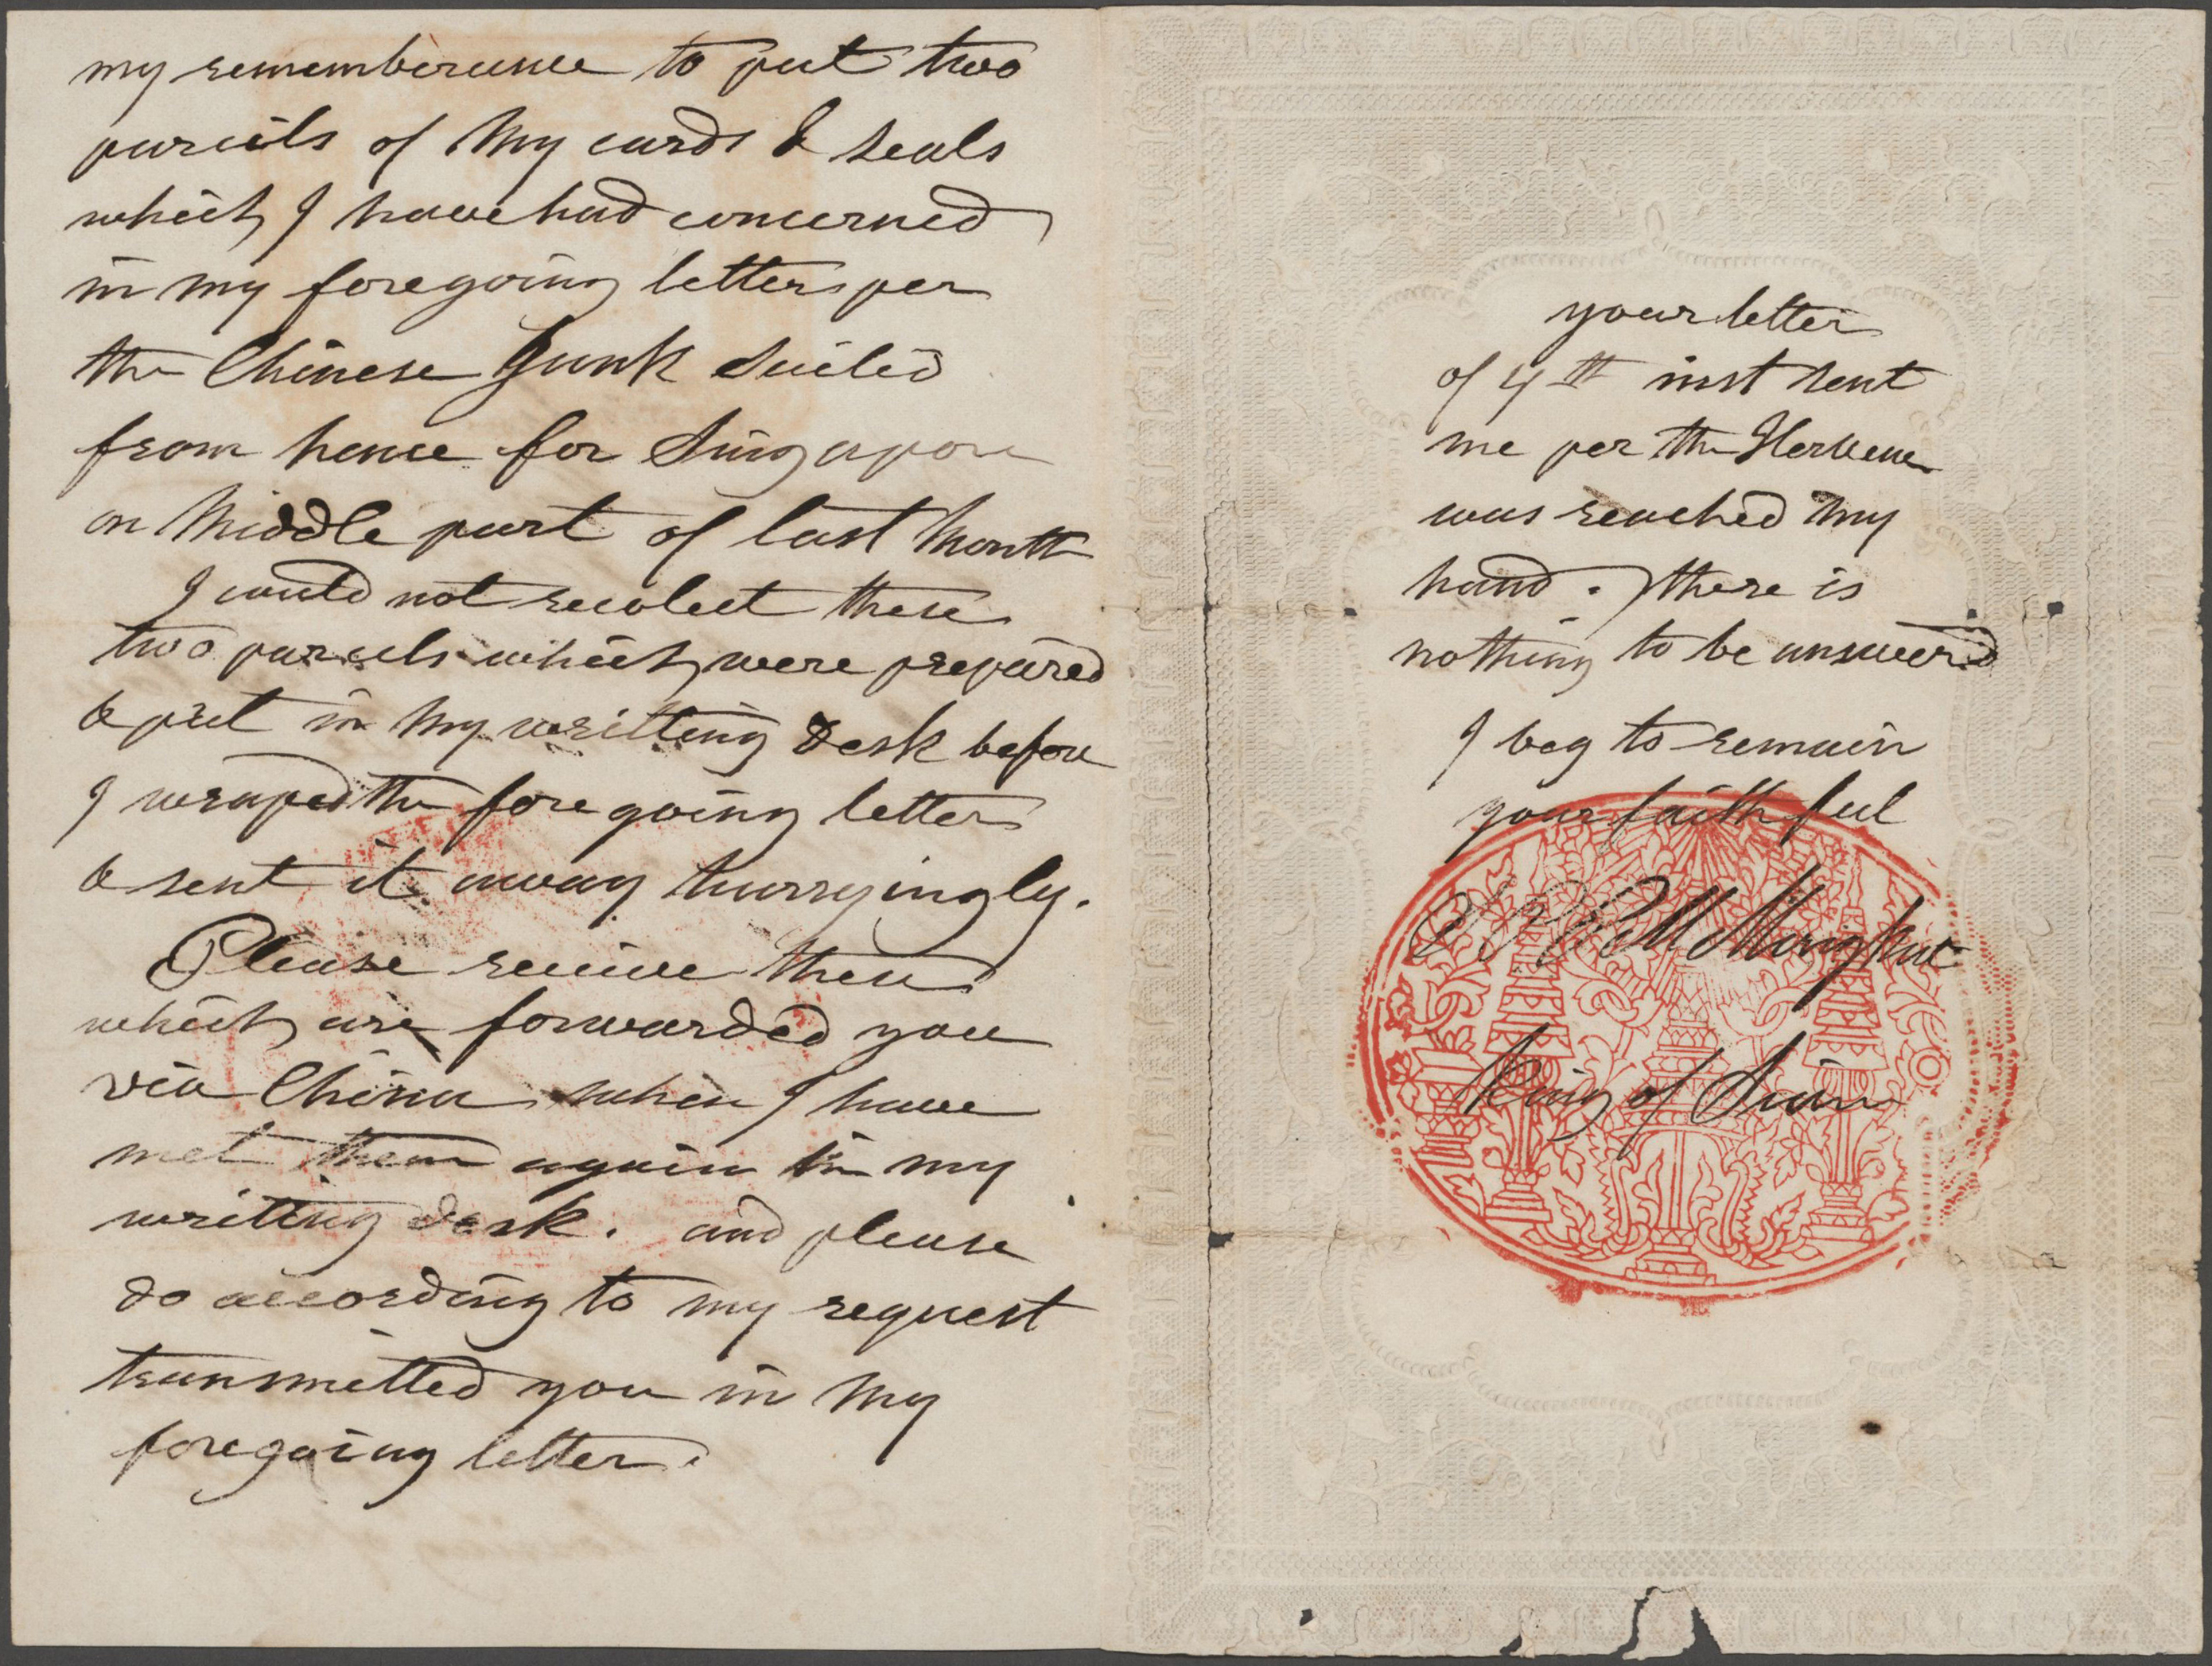 my rememberance to put two
parcels of my cards & seals
which I have had concerned
in my foregoing letter per
the Chinese Junk sailed
from hence for Singapore
on middle part of last month
I could not recolect these
two parcels which were prepared
& put in my writting desk before
I wraped the foregoing letter
& sent it away hurryingly.
Please receive them
which are forwarded you
via China when I have
met them again in my
writting desk. and please
do according to my request
transmitted you in my
foregoing letter.
your letter
of 4th inst sent
me per the
was reached my
hand. there is
nothing to be answered
I beg to remain
your faithful
S P P M Mongkut
King of Siam